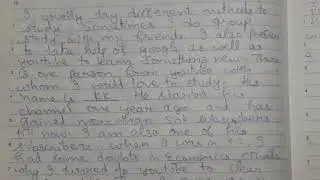 I usually try different methods to
study. Sometimes I do group
study with my friends. I also prefer
to take help of google as well as
youtube to learn something new. There
is one person from youtube with
whom I would love to study. His
name is BK. He started his
channel one year ago and has
gained more than 50k subscribers
till now. I am also one of his
subscribers. When I was in +2, I
had some doubts in economics that's
why I turned to youtube to clear